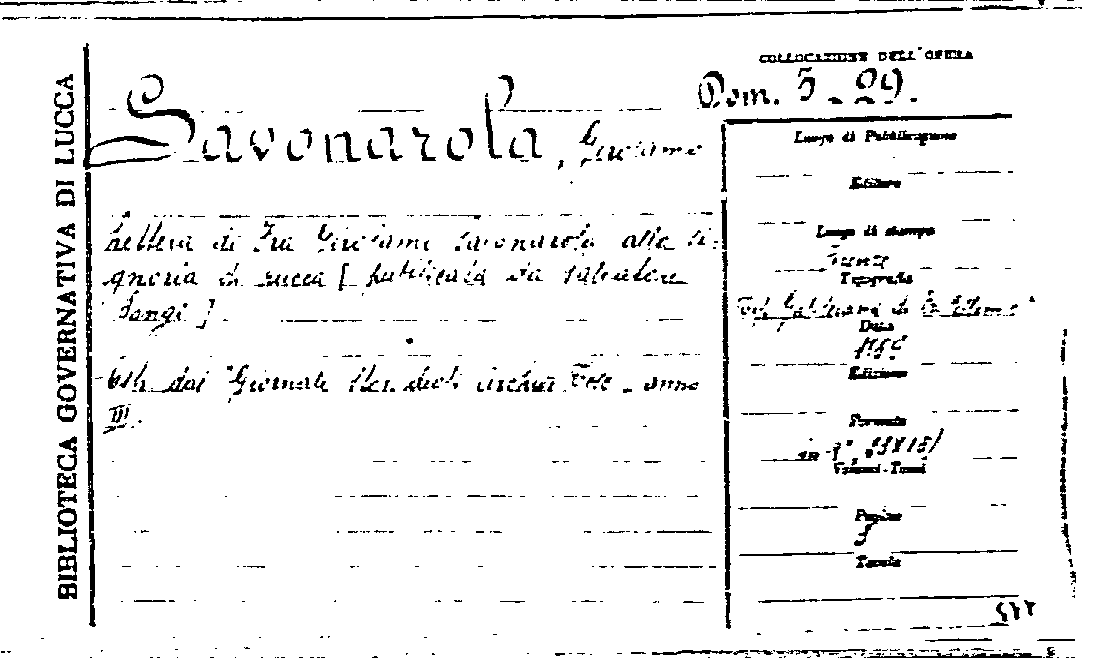 BIBLIOTECA GOVERNATIVA DI LUCCA
COLLOCAZIONE DELL'OPERA
Dom. 5 - 29.
Savonarola, Girolamo
Lettera di Fra Girolamo Savonarola alla Si-
gnoria di Lucca [pubblicata da Salvatore
Bongi].
Estr. dal "Giornale Stor. degli Archivi Tosc. - anno
III.
Luogo di Pubblicazione
Editore
Luogo di stampa
Firenze
Tipografia
Tip. Galileiana di
Data
Edizione
Formato
in-8°,
Volumi-Tomi
Pagine
Tavole